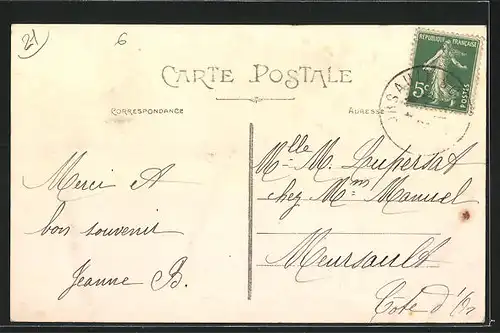 21
6
CARTE POSTALE
RÉPUBLIQUE FRANÇAISE
5c
POSTES
CORRESPONDANCE
ADRESSE
Mlle M. Loupersat
chez Mme Manuel
Meursault
Côte d'Or
Merci et
bon souvenir
Jeanne B.